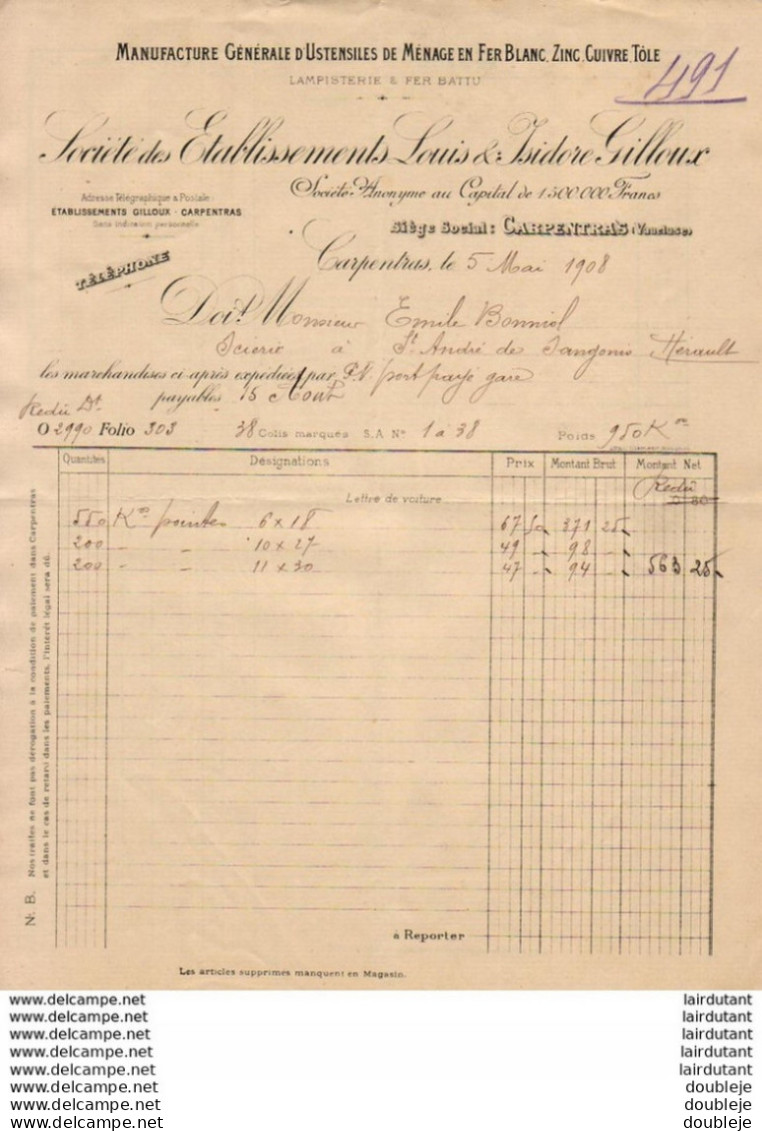 MANUFACTURE GÉNÉRALE D'USTENSILES DE MÉNAGE EN FER BLANC, ZINC, CUIVRE, TÔLE
LAMPISTERIE & FER BATTU
491
Société des Etablissements Louis & Isidore Gilloux
Société Anonyme au Capital de 1.500.000 Francs
Adresse Télégraphique & Postale:
ETABLISSEMENTS GILLOUX - CARPENTRAS
Sans indication personnelle
Siège Social: CARPENTRAS (Vaucluse)
TÉLÉPHONE
Carpentras, le 5 Mai 1908
Doit Monsieur Emile Bonniol
Scierie à St. André de Sangonis Hérault
les marchandises ci-après expédiées par P.V. port payé gare
payables 15 Aout
Redû
O 2990 Folio 303 38 Colis marqués S.A. Nº 1 à 38 Poids 950 K
Quantités Désignations Prix Montant Brut Montant Net
Redû
Lettre de voiture
550 Kos pointes 6 x 18 67 50 371 25
200 - - 10 x 27 49 - 98 -
200 - - 11 x 30 47 - 94 - 563 25
N. B. Nos traites ne font pas dérogation à la condition de paiement dans Carpentras
et dans le cas de retard dans les paiements, l'intérêt légal sera dû.
à Reporter
Les articles supprimés manquent en Magasin.
www.delcampe.net lairdutant
www.delcampe.net lairdutant
www.delcampe.net lairdutant
www.delcampe.net lairdutant
www.delcampe.net lairdutant
www.delcampe.net doubleje
www.delcampe.net doubleje
www.delcampe.net doubleje